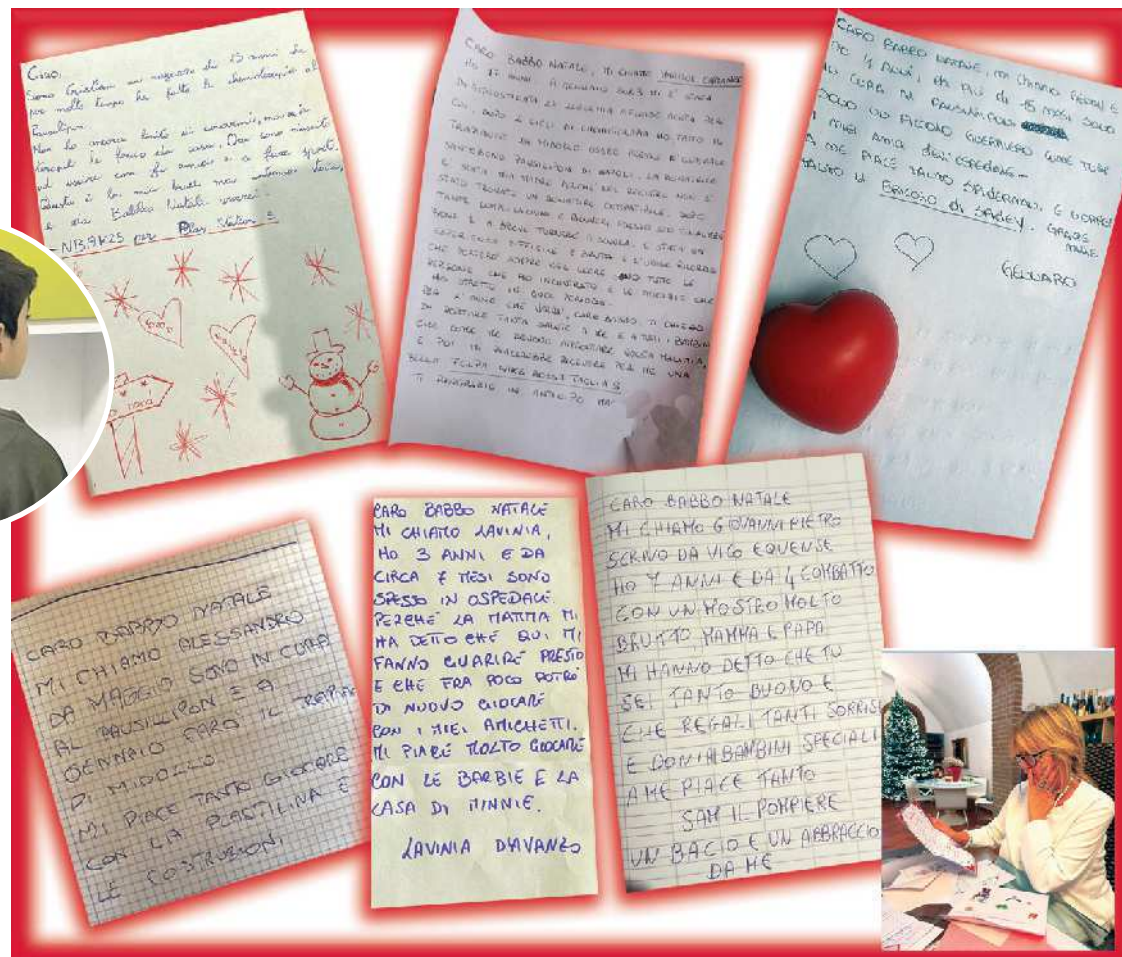 Ciao,
Sono Cristian un ragazzo di 13 anni che
per molto tempo ha fatto la chemioterapia al
Pausilipon
Non ho ancora finito di
terapie le faccio da casa. Ora sono riuscito
ad uscire con for amici e a fare sport.
Questa è la mia
e da Babbo Natale vorrei:
per Play Station 5
CARO BABBO NATALE, MI CHIAMO
HO 17 ANNI A GENNAIO MI E' STATA
DIAGNOSTICATA LA LEUCEMIA
CUI, DOPO 2 CICLI DI CHEMIOTERAPIA HO FATTO IL
TRAPIANTO DI MIDOLLO OSSEO PRESSO L'OSPEDALE
SANTOBONO PAUSILIPON DI NAPOLI. LA DONATRICE
E' STATA MIA MADRE POICHE' NEL REGISTRO NON E'
STATO TROVATO UN DONATORE COMPATIBILE. DOPO
TANTE
BENE E A BREVE TORNERO' A SCUOLA. E' STATA UN
ESPERIENZA DIFFICILE E BRUTTA E L'UNICO RICORDO
CHE PORTERO' SEMPRE NEL CUORE SONO TUTTE LE
PERSONE CHE HO INCONTRATO E LE AMICIZIE CHE
HO STRETTO IN QUEL PERIODO.
PER L'ANNO CHE VERRA', CARO BABBO, TI CHIEDO
DI PORTARE TANTA SALUTE A ME E A TUTTI I BAMBINI
CHE COME ME DEVONO AFFRONTARE QUESTA MALATTIA,
E POI MI PIACEREBBE RICEVERE PER ME UNA
BELLA FELPA NIKE ROSSA TAGLIA S
TI RINGRAZIO IN ANTICIPO
CARO BABBO NATALE, MI CHIAMO GENNARO E
HO 4 ANNI, DA PIÙ DI 15 MESI SONO
IN CURA AL PAUSILIPON
SONO UN PICCOLO GUERRIERO COME TUTTI
I MIEI AMICI DELL'OSPEDALE.
A ME PIACE TANTO SPIDERMAN, E VORREI
TANTO IL BRACCIO DI SPIDEY. GRAZIE
MILLE
GENNARO
CARO BABBO NATALE
MI CHIAMO ALESSANDRO
DA MAGGIO SONO IN CURA
AL PAUSILIPON E A
GENNAIO FARÒ IL TRAPIANTO
DI MIDOLLO.
MI PIACE TANTO GIOCARE
CON LA PLASTILINA E
LE COSTRUZIONI
CARO BABBO NATALE
MI CHIAMO LAVINIA,
HO 3 ANNI E DA
CIRCA 7 MESI SONO
SPESSO IN OSPEDALE.
PERCHÉ LA MAMMA MI
HA DETTO CHE QUI MI
FANNO GUARIRE PRESTO
E CHE FRA POCO POTRÒ
DI NUOVO GIOCARE
CON I MIEI AMICHETTI.
MI PIACE MOLTO GIOCARE
CON LE BARBIE E LA
CASA DI MINNIE.
LAVINIA D'AVANZO
CARO BABBO NATALE
MI CHIAMO GIOVANNI PIETRO
SCRIVO DA VICO EQUENSE
HO 7 ANNI E DA 4 COMBATTO
CON UN MOSTRO MOLTO
BRUTTO, MAMMA E PAPÀ
MI HANNO DETTO CHE TU
SEI TANTO BUONO E
CHE REGALI TANTI SORRISI
E DONI AI BAMBINI SPECIALI
A ME PIACE TANTO
SAM IL POMPIERE
UN BACIO E UN ABBRACCIO
DA ME